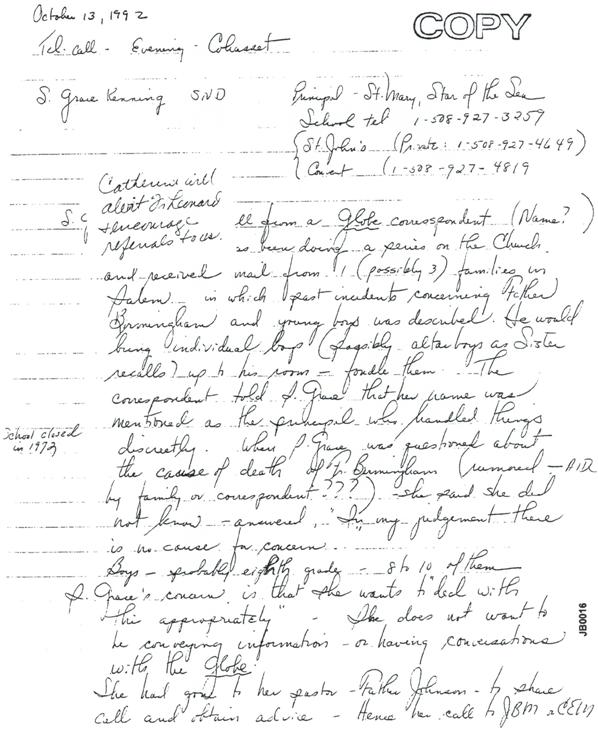 October 13, 1992
COPY
Tel. call - Evening - Cohasset
S. Grace Kenning SND
Principal - St. Mary, Star of the Sea
School tel 1-508-927-3259
{ St. John's (Private: 1-508-927-4649)
{ Convent (1-508-927-4819
Catherine will
alert Fr. Leonard
+ encourage
referrals to us.
S. G
ll from a Globe correspondent (Name?)
s been doing a series on the Church
and received mail from 1 (possibly 3) families in
Salem - in which past incidents concerning Father
Birmingham and young boys was described. He would
bring individual boys (possibly altar boys as Sister
recalls) up to his room - fondle them. The
correspondent told S. Grace that her name was
mentioned as the principal who handled things
School closed
in 1972
discreetly. When S. Grace was questioned about
the cause of death of Fr. Birmingham (rumored - AID
by family or correspondent???) - she said she did
not know - answered, "In my judgement there
is no cause for concern.
Boys - probably eighth grade - 8 to 10 of them
S. Grace's concern is that she wants to "deal with
this appropriately" - She does not want to
be conveying information - or having conversations
with the Globe.
She had gone to her pastor - Father Johnson - to share
call and obtain advice - Hence her call to JBM
JB0016